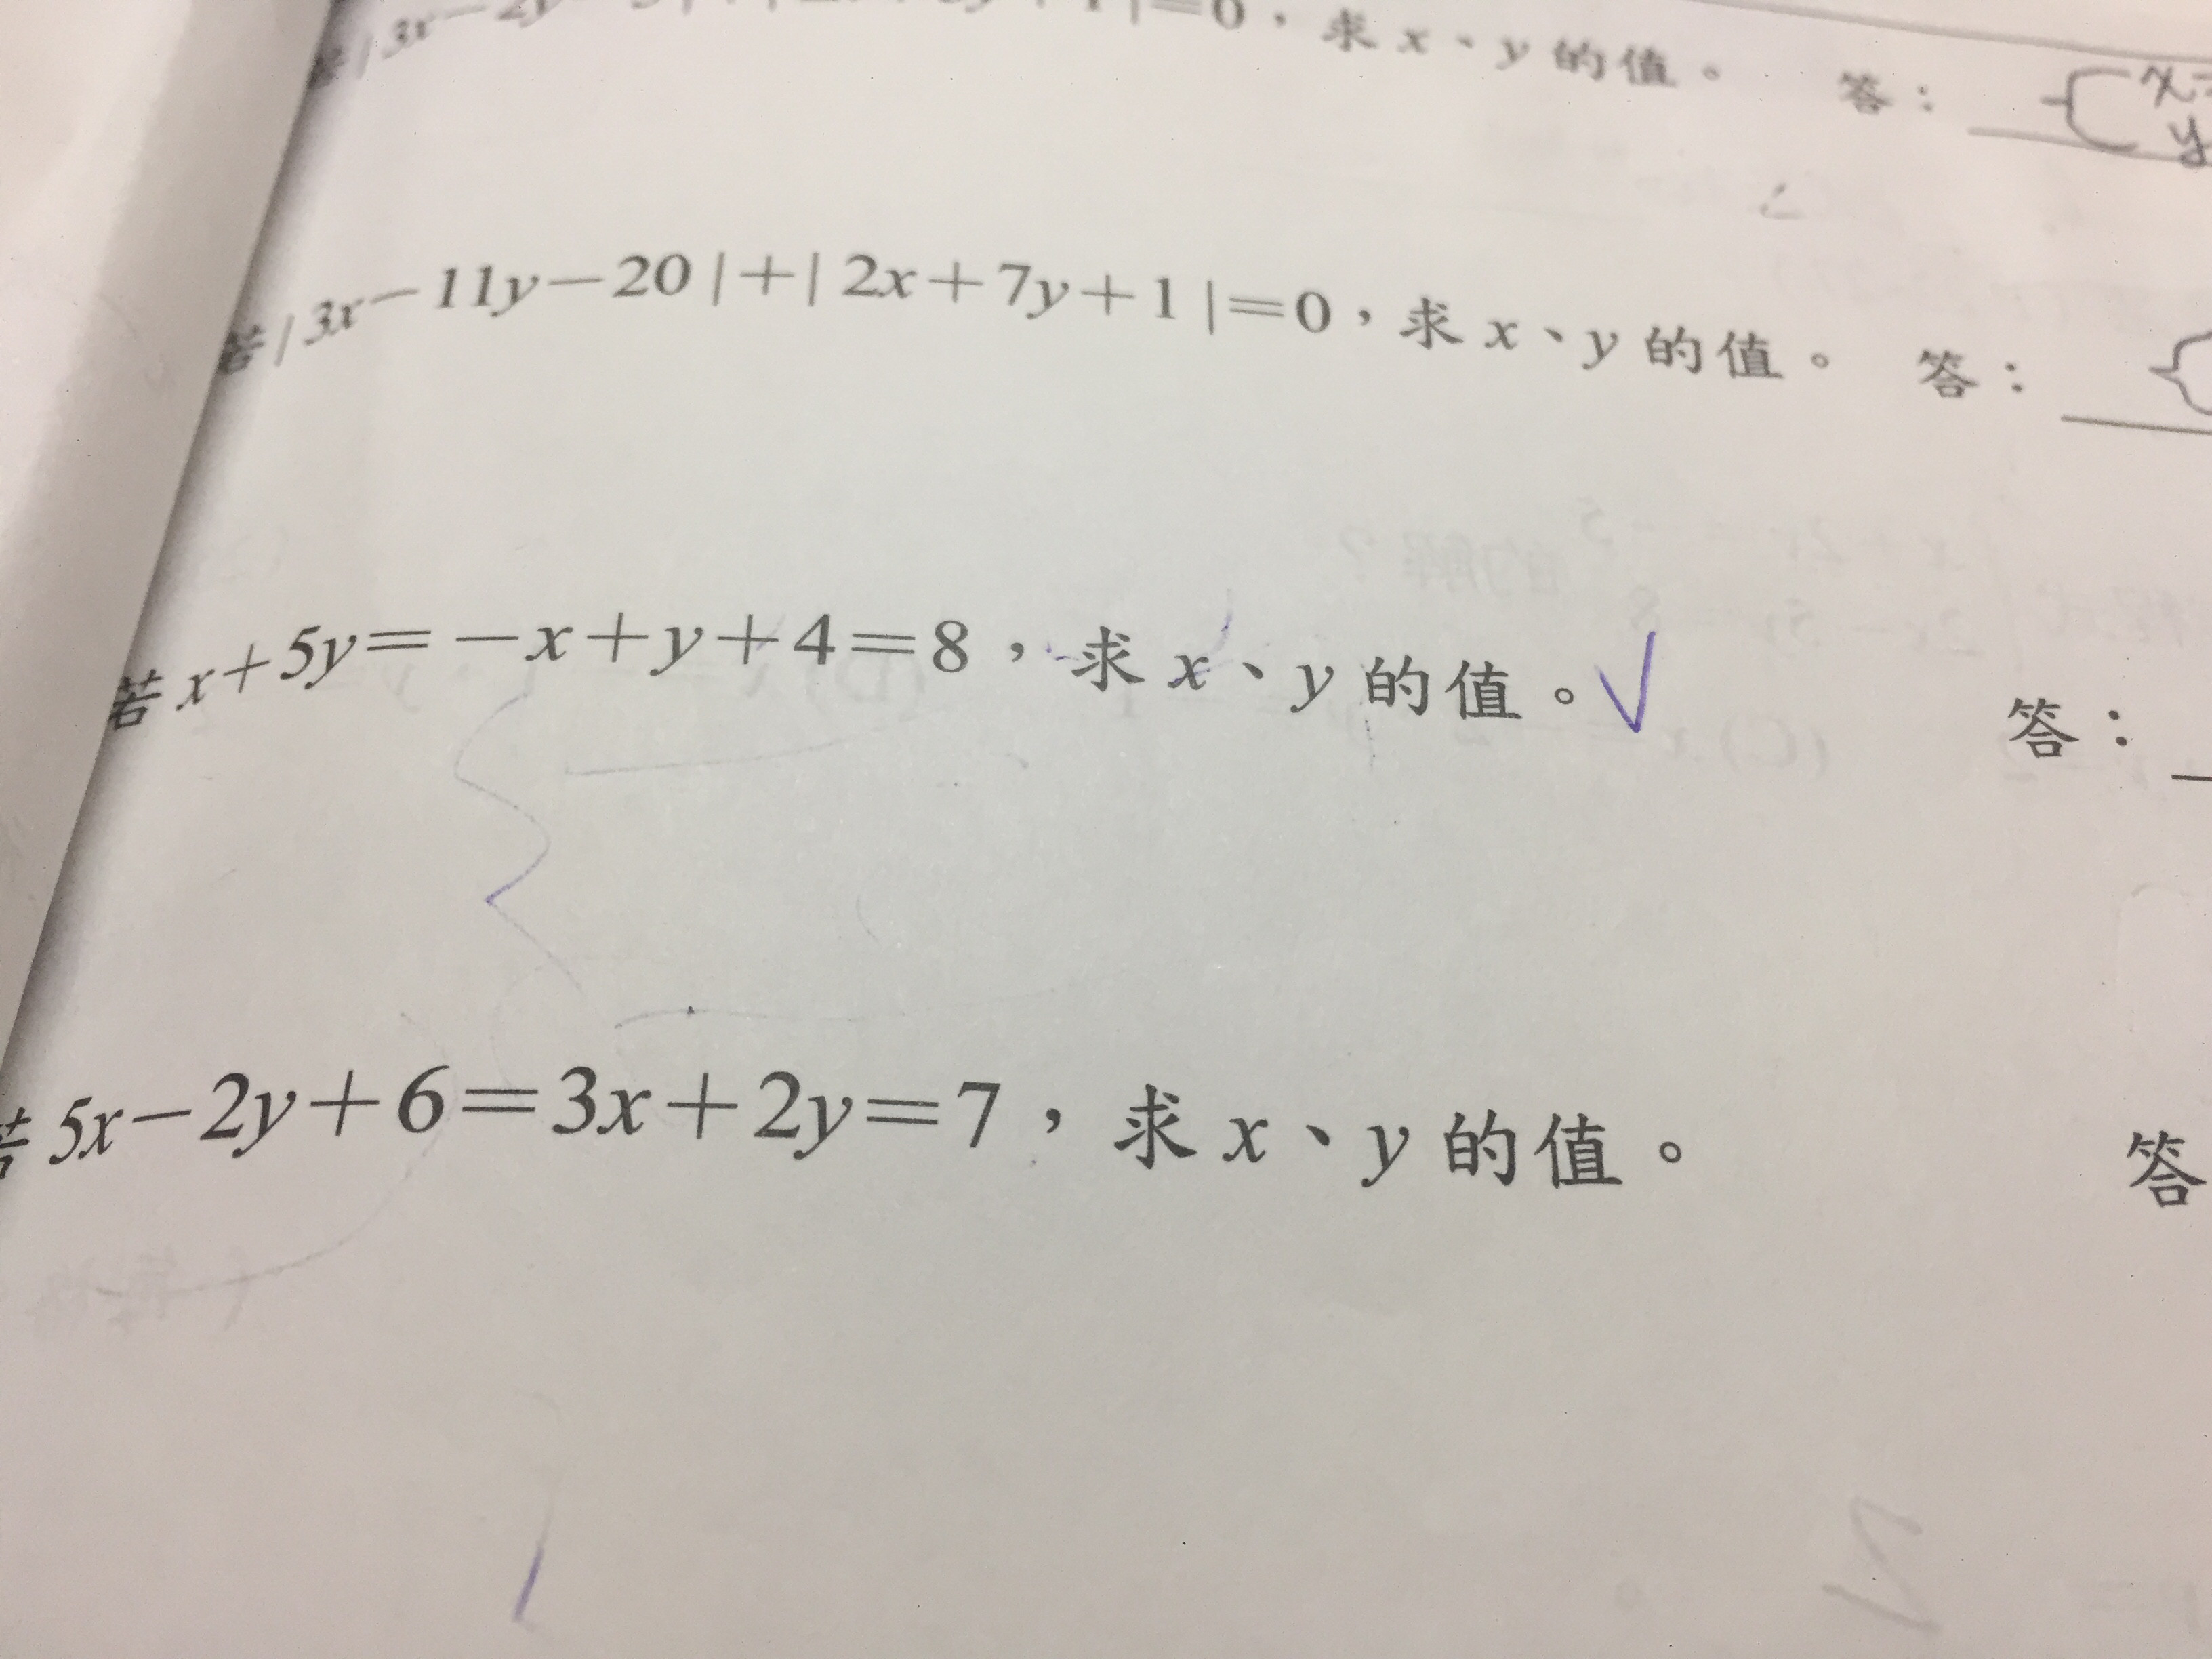 |3x－2y |=0，求 x、y 的值。 答： x=
y
若|3x－11y－20|＋|2x＋7y＋1|=0，求 x、y 的值。 答：
若 x＋5y＝－x＋y＋4＝8，求 x、y 的值。 答：
若 5x－2y＋6＝3x＋2y＝7，求 x、y 的值。 答